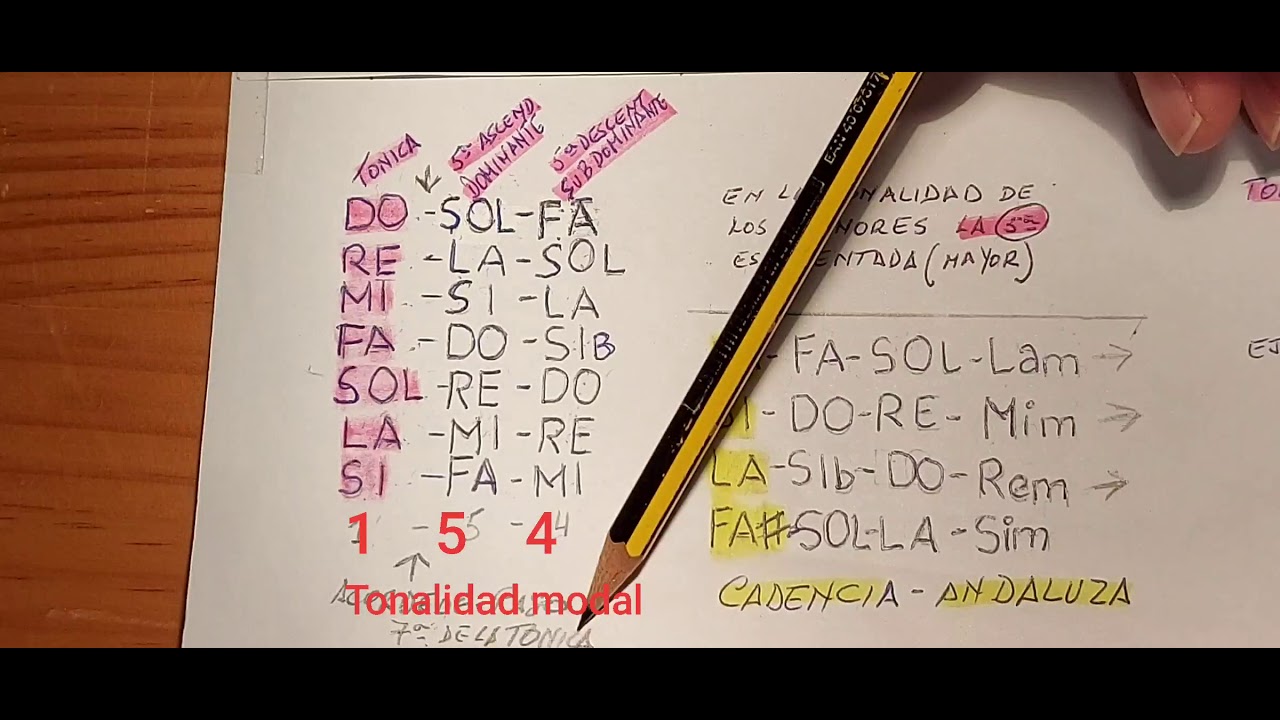 TONICA
5ª ASCEND
DOMINANTE
5ª DESCENT
SUBDOMINANTE
DO -SOL-FA
RE -LA-SOL
MI -SI -LA
FA -DO -SIB
SOL -RE -DO
LA -MI -RE
SI -FA - MI
1 - 5 - 4
1 5 4
Tonalidad modal
7ª DE LA TONICA
EN L ONALIDAD DE
LOS NORES LA 5ª
ES ENTADA (MAYOR)
- FA-SOL-Lam →
I - DO-RE- Mim →
LA-SIb-DO-Rem →
FA#-SOL-LA-Sim
CADENCIA - ANDALUZA
EAN 40 07817
TO
EJ